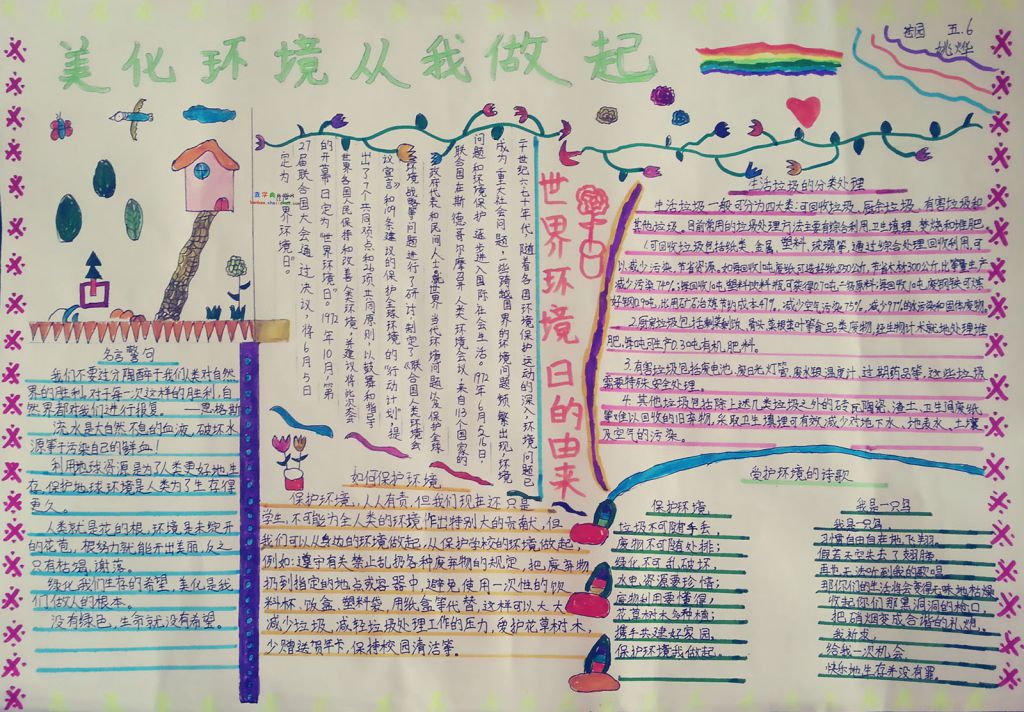 美化环境从我做起
校园 五.6
姚烨
名言警句
我们不要过分陶醉于我们人类对自然
界的胜利,对于每一次这样的胜利,自
然界都对我们进行报复。——恩格斯
流水是大自然不息的血液,破坏水
源等于污染自己的鲜血!
利用地球资源是为了人类更好地生
存,保护地球环境是人类为了生存得
更久。
人类就是花的根,环境是未绽开
的花苞,根努力就能开出美丽,反之
只有枯竭、谢落。
绿化我们生存的希望,美化是我
们做人的根本。
没有绿色,生命就没有希望。
世界环境日的由来
二十世纪六七十年代,随着各国环境保护运动的深入,环境问题已
成为重大社会问题,一些跨越国界的环境问题频繁出现,环境
问题和环境保护逐步进入国际社会生活。1972年6月5—16日,
联合国在斯德哥尔摩召开人类环境会议,来自113个国家的
政府代表和民间人士就世界当代环境问题以及保护全球
环境战略等问题进行了研讨,制定了《联合国人类环境会
议宣言》和109条建议的保护全球环境的“行动计划”,提
出了7个共同观点和26项共同原则,以鼓舞和指导
世界各国人民保持和改善人类环境,并建议将此次大会
的开幕日定为“世界环境日”。1972年10月,第
27届联合国大会通过决议,将6月5日
定为“世界环境日”。
如何保护环境
保护环境,人人有责,但我们现在还只是
学生,不可能为全人类的环境作出特别大的贡献,但
我们可以从身边的环境做起,从保护学校的环境做起,
例如:遵守有关禁止乱扔各种废弃物的规定,把废弃物
扔到指定的地点或容器中,避免使用一次性的饮
料杯、饭盒、塑料袋,用纸盒等代替,这样可以大大
减少垃圾,减轻垃圾处理工作的压力,爱护花草树木,
少赠送贺年卡,保持校园清洁等。
生活垃圾的分类处理
生活垃圾一般可分为四大类:可回收垃圾、厨余垃圾、有害垃圾和
其他垃圾。目前常用的垃圾处理方法主要有综合利用、卫生填埋、焚烧和堆肥。
1.可回收垃圾包括纸类、金属、塑料、玻璃等,通过综合处理回收利用,可
以减少污染,节省资源。如每回收1吨废纸可造好纸850公斤,节省木材300公斤,比等量生产
减少污染74%;每回收1吨塑料饮料瓶可获得0.7吨二级原料;每回收1吨废钢铁可炼
好钢0.9吨,比用矿石冶炼节约成本47%,减少空气污染75%,减少97%的水污染和固体废物。
2.厨房垃圾包括剩菜剩饭、骨头、菜根菜叶等食品类废物,经生物技术就地处理堆
肥,每吨可生产0.3吨有机肥料。
3.有害垃圾包括废电池、废日光灯管、废水银温度计、过期药品等,这些垃圾
需要特殊安全处理。
4.其他垃圾包括除上述几类垃圾之外的砖瓦陶瓷、渣土、卫生间废纸
等难以回收的旧弃物,采取卫生填埋可有效减少对地下水、地表水、土壤
及空气的污染。
爱护环境的诗歌
保护环境
垃圾不可随手丢,
废物不可随处排;
绿化不可乱破坏,
水电资源要珍惜;
废物利用要懂得,
花草树木多种植;
携手共建好家园,
保护环境我做起。
我是一只鸟
我是一只鸟,
习惯自由自在地飞翔。
假若天空失去了翅膀,
再也无法听到我的歌唱
那你们的生活将会变得无味地枯燥
收起你们那黑洞洞的枪口
把硝烟变成合谐的礼炮。
我祈求,
给我一次机会
快乐地生存并没有罪。